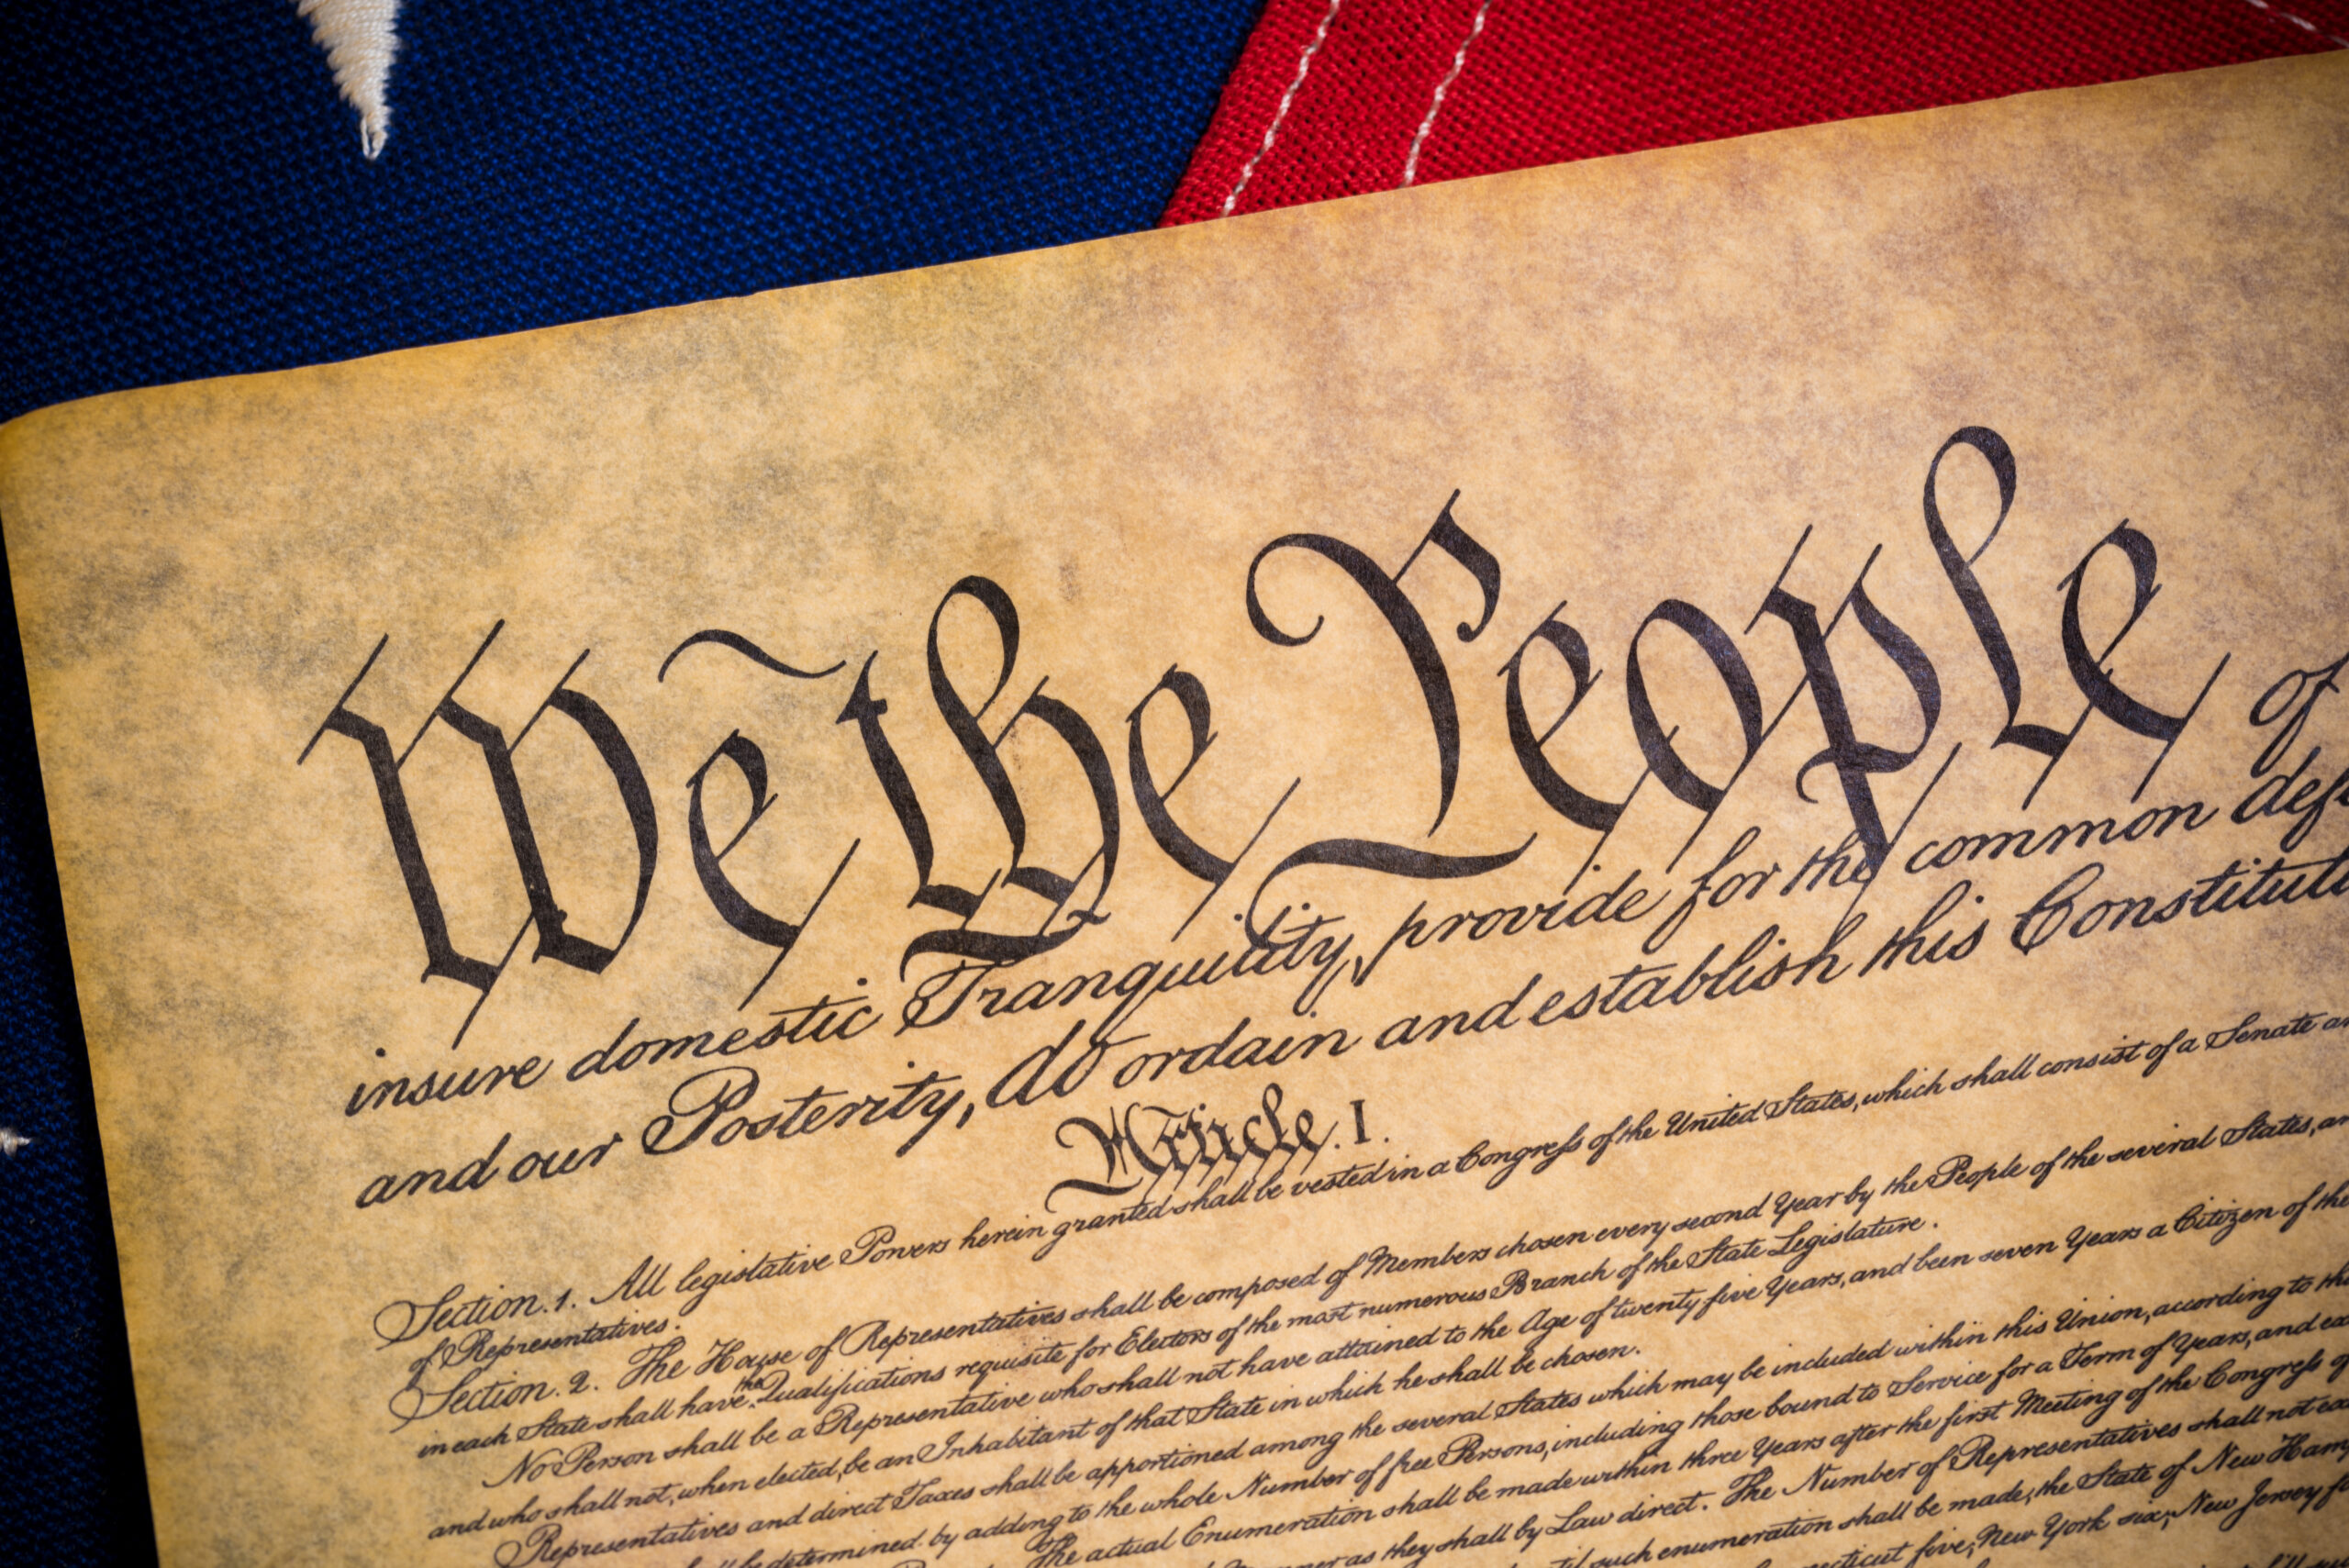 We the People of
insure domestic Tranquility, provide for the common def
and our Posterity, do ordain and establish this Constituti
Article. I.
Section. 1. All legislative Powers herein granted shall be vested in a Congress of the United States, which shall consist of a Senate an
of Representatives.
Section. 2. The House of Representatives shall be composed of Members chosen every second Year by the People of the several States, an
in each State shall have the Qualifications requisite for Electors of the most numerous Branch of the State Legislature.
No Person shall be a Representative who shall not have attained to the Age of twenty five Years, and been seven Years a Citizen of the
and who shall not, when elected, be an Inhabitant of that State in which he shall be chosen.
Representatives and direct Taxes shall be apportioned among the several States which may be included within this Union, according to the
be determined by adding to the whole Number of free Persons, including those bound to Service for a Term of Years, and ex
The actual Enumeration shall be made within three Years after the first Meeting of the Congress of
as they shall by Law direct. The Number of Representatives shall not exc
such enumeration shall be made, the State of New Ham
five, New York six, New Jersey f